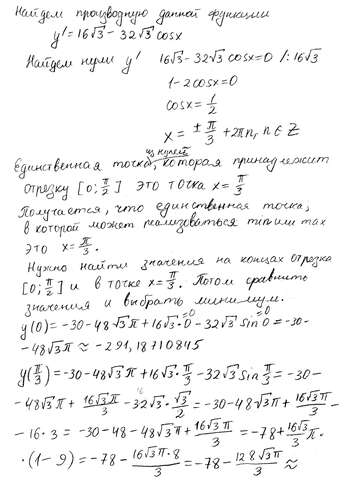 Найдем производную данной функции
y' = 16√3 - 32√3 cosx
Найдем нули y' 16√3 - 32√3 cosx = 0 /: 16√3
1 - 2cosx = 0
cosx = 1/2
x = ± π/3 + 2πn, n ∈ Z
из нулей
Единственная точка, которая принадлежит
отрезку [0; π/2] это точка x = π/3
Получается, что единственная точка,
в которой может реализоваться min или max
это x = π/3.
Нужно найти значения на концах отрезка
[0; π/2] и в точке x = π/3. Потом сравнить
значения и выбрать минимум.
y(0) = -30 - 48√3π + 16√3·0 - 32√3 sin0 = -30-
=0 =0
-48√3π ≈ -291,18710845
y(π/3) = -30 - 48√3π + 16√3·π/3 - 32√3 sin π/3 = -30-
-48√3π + 16√3π/3 - 32√3·√3/2 = -30 - 48√3π + 16√3π/3 -
-16·3 = -30 - 48 - 48√3π + 16√3π/3 = -78 + 16√3π/3 ·
·(1-9) = -78 - 16√3π·8/3 = -78 - 128√3π/3 ≈